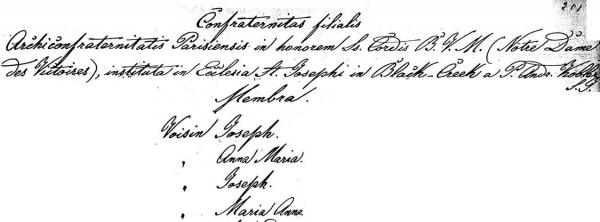 201
Confraternitas filialis
Archiconfraternitatis Parisiensis in honorem Ss. Cordis B. V. M. (Notre Dâme
des Victoires), instituta in Ecclesia St. Josephi in Black-Creek a P. Andr.
S.J.
Membra.
Voisin Joseph.
" Anna Maria.
" Joseph.
" Maria Anna